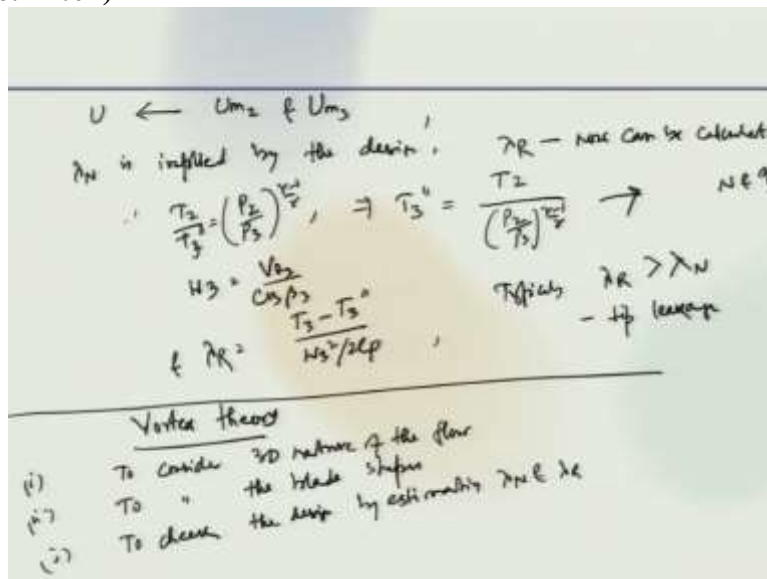 U ← Um2 & Um3
λN is implied by the design. λR — now can be calculat
∴ T2/T3" = (P2/P3)^(γ-1)/γ, ⇒ T3" = T2/(P2/P3)^(γ-1)/γ → N &
W3 = Va3/cos β3
Typically λR > λN
- tip leakage
& λR = (T3 - T3")/(W3²/2Cp),
Vortex theory
(i) To consider 3D nature of the flow
(ii) To " the blade shapes
To check the design by estimating λN & λR